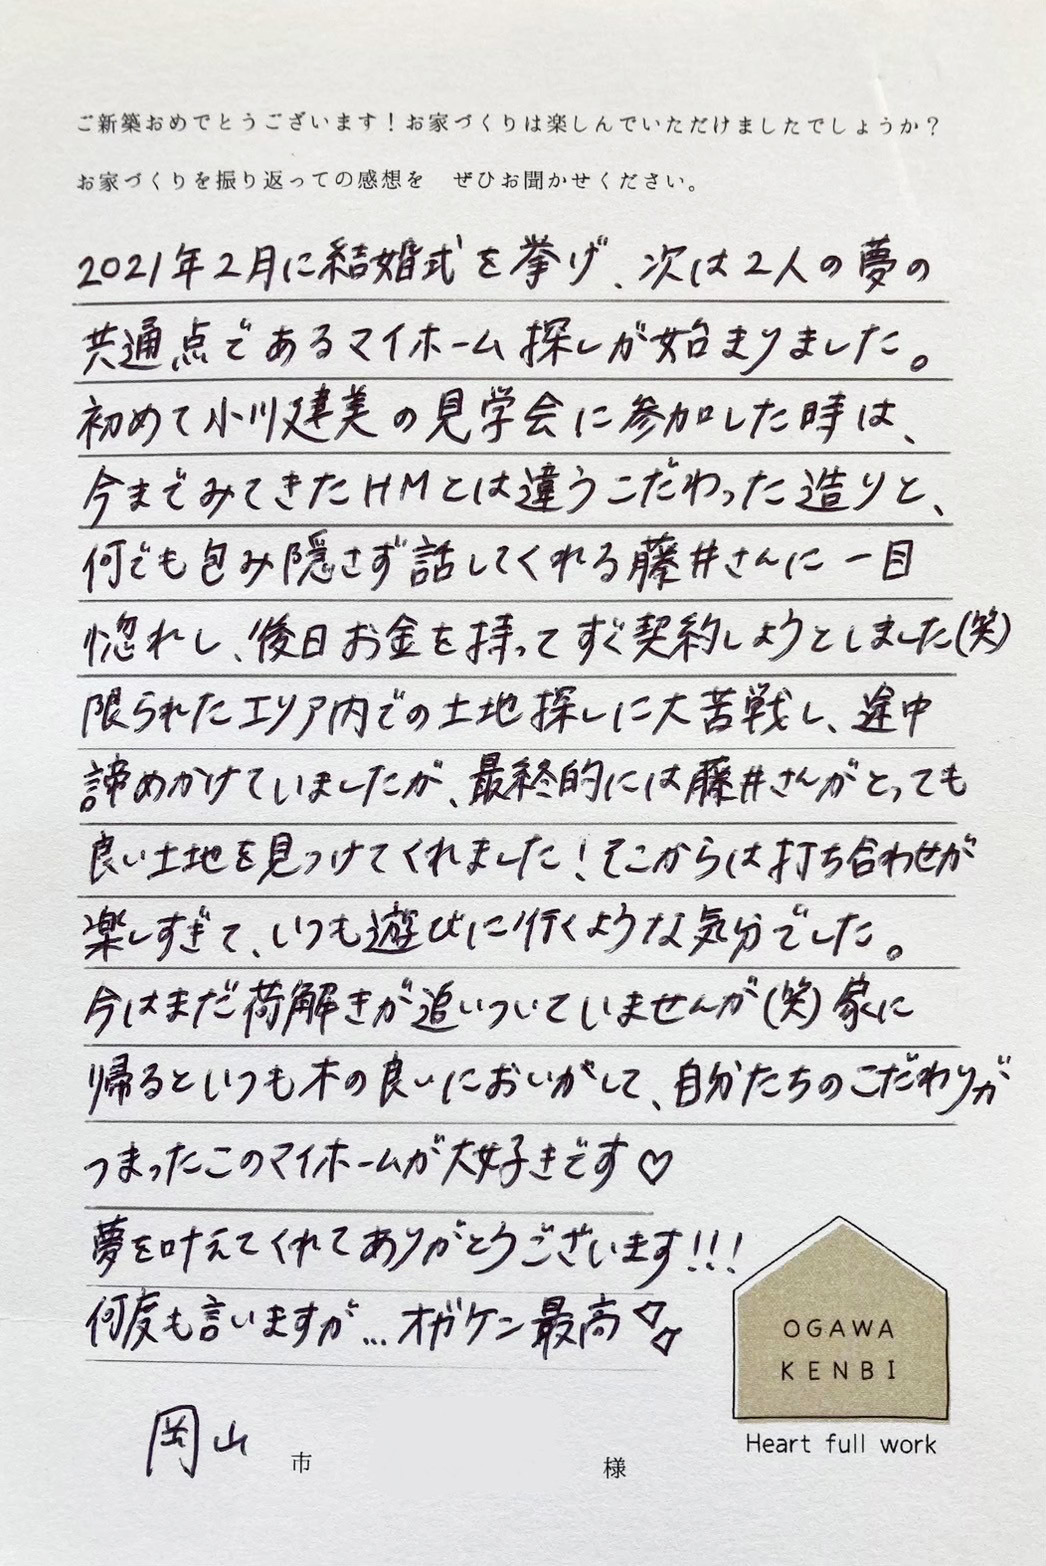 ご新築おめでとうございます！お家づくりは楽しんでいただけましたでしょうか？
お家づくりを振り返っての感想を　ぜひお聞かせください。
2021年2月に結婚式を挙げ、次は2人の夢の
共通点であるマイホーム探しが始まりました。
初めて小川建美の見学会に参加した時は、
今までみてきたHMとは違うこだわった造りと、
何でも包み隠さず話してくれる藤井さんに一目
惚れし、後日お金を持ってすぐ契約しようとしました(笑)
限られたエリア内での土地探しに大苦戦し、途中
諦めかけていましたが、最終的には藤井さんがとっても
良い土地を見つけてくれました！そこからは打ち合わせが
楽しすぎて、いつも遊びに行くような気分でした。
今はまだ荷解きが追いついていませんが(笑)家に
帰るといつも木の良いにおいがして、自分たちのこだわりが
つまったこのマイホームが大好きです♡
夢を叶えてくれてありがとうございます!!!
何度も言いますが…オガケン最高
OGAWA
KENBI
Heart full work
岡山 市 様